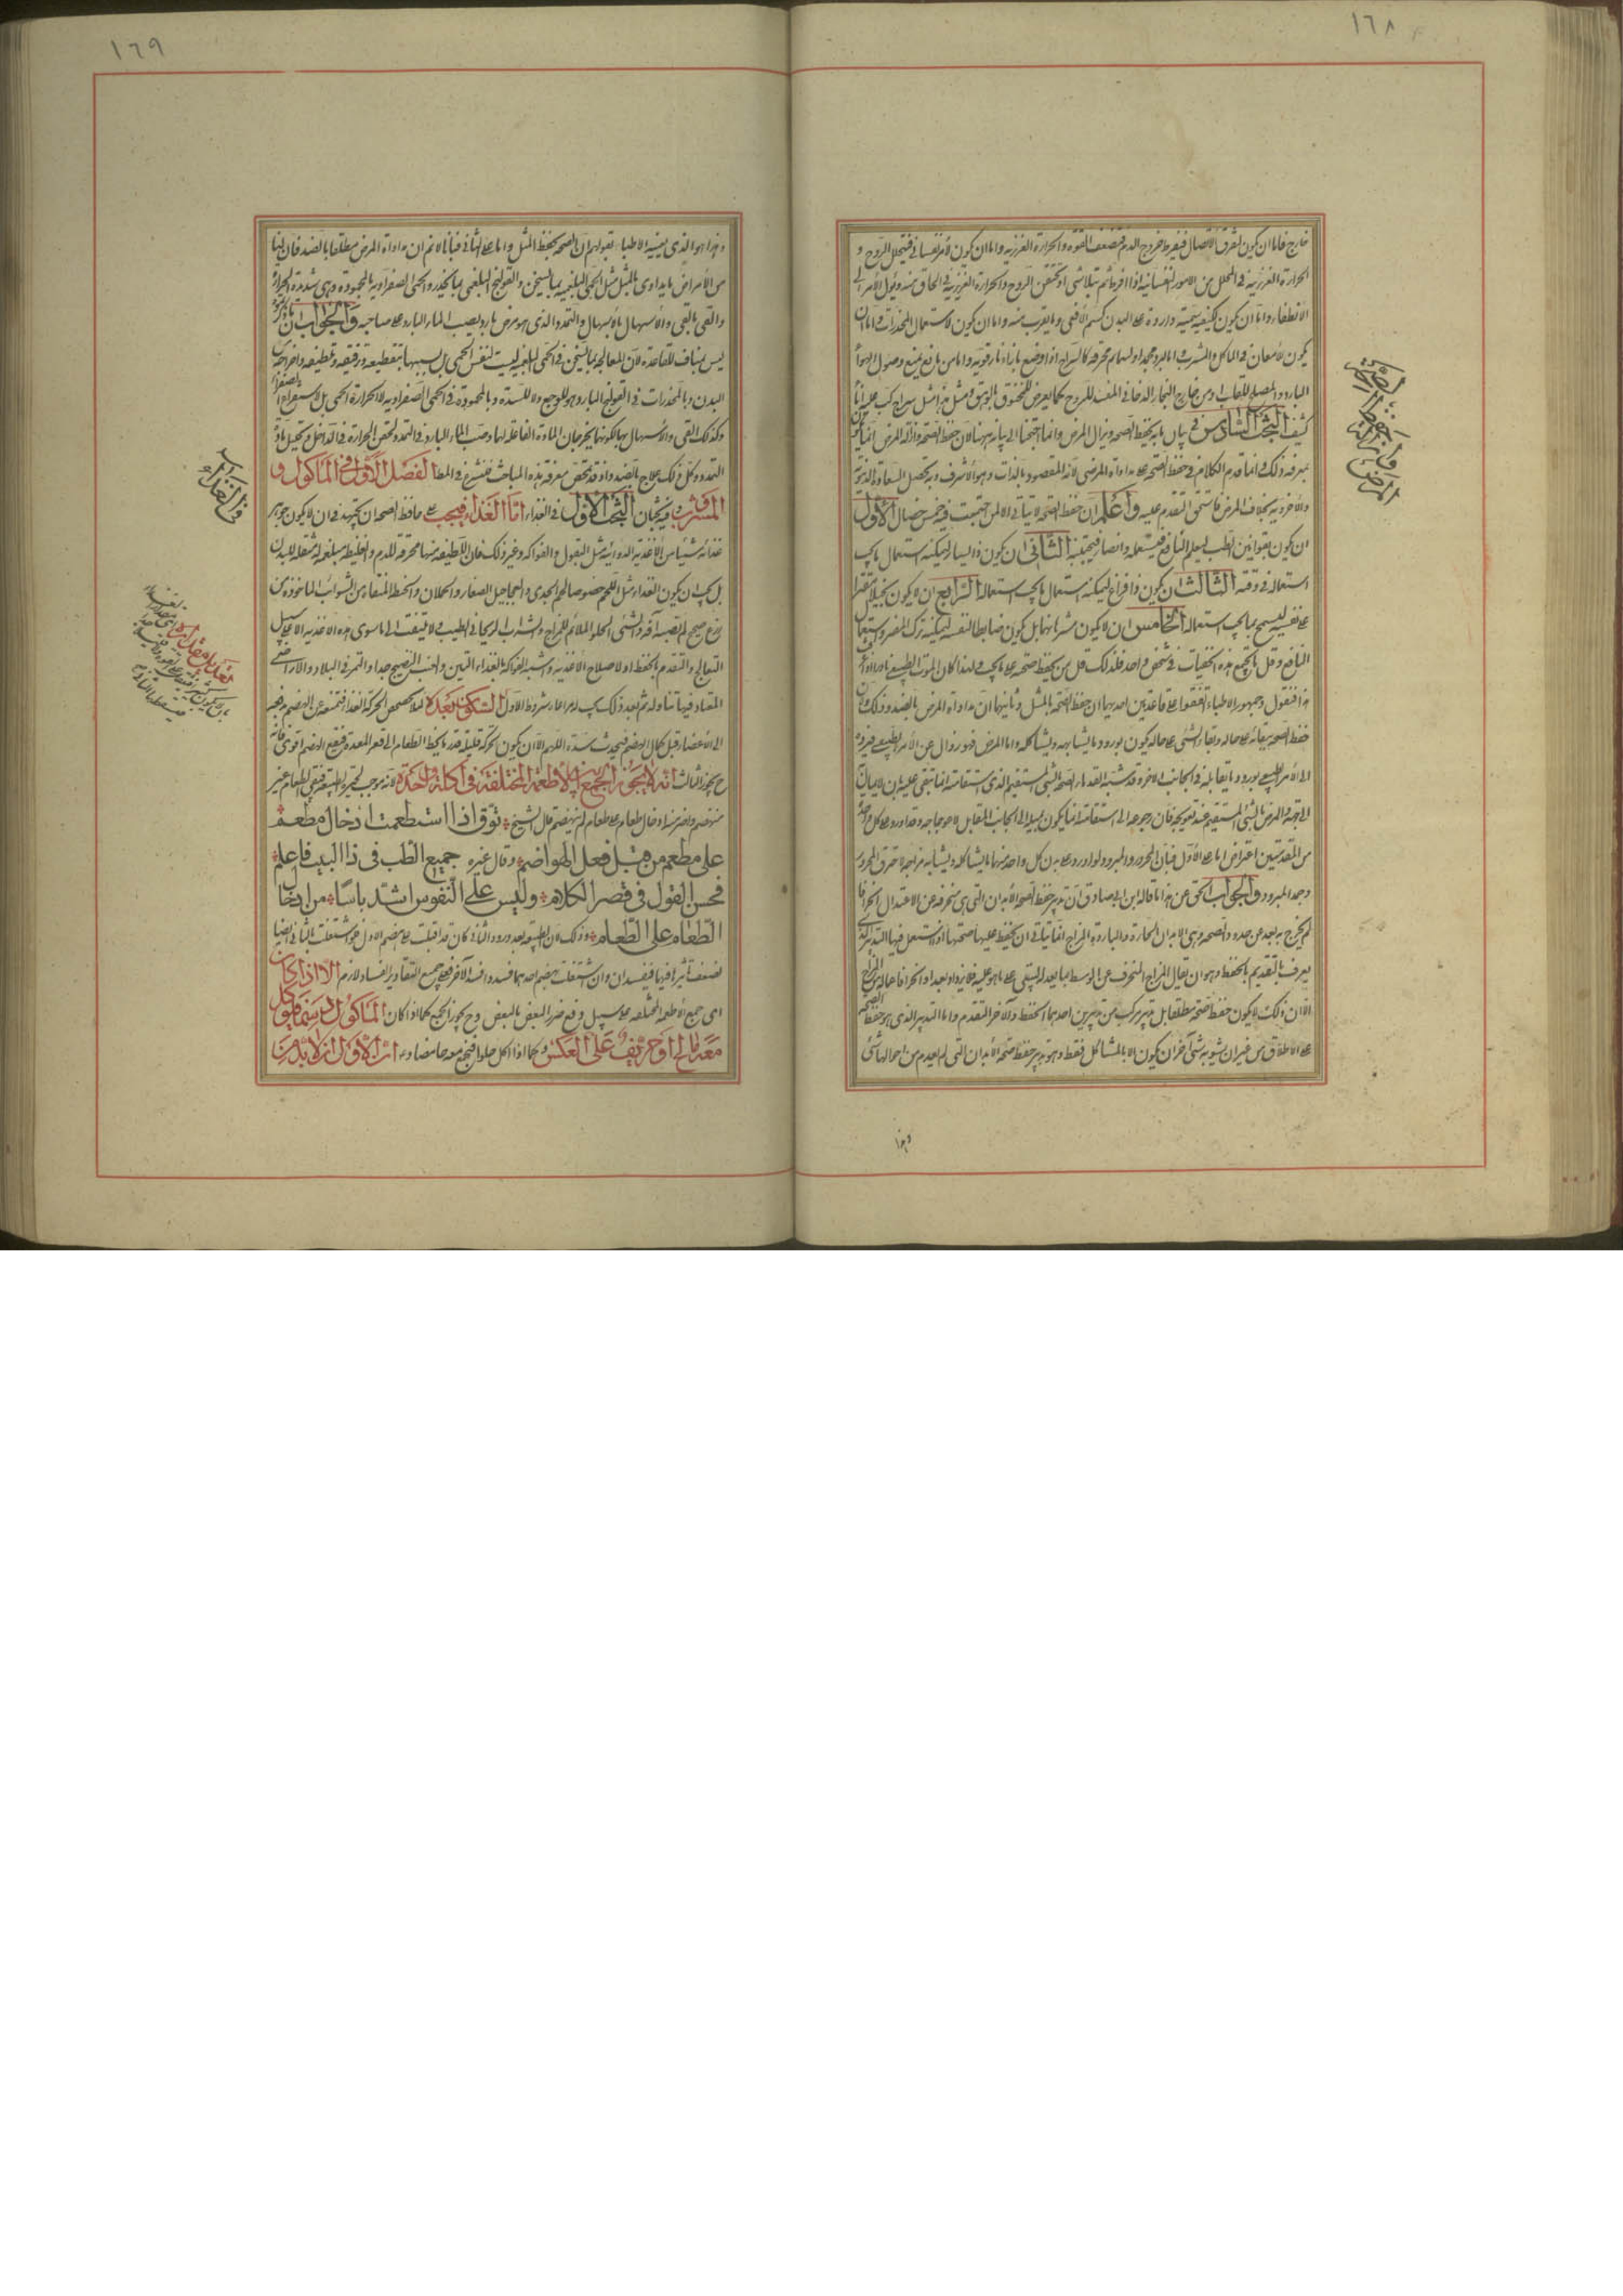 ١٦٨
خارج فاما ان يكون لتفرق الاتصال فيفرط خروج الدم فتضعف القوة والحرارة الغريزية واما ان يكون لامر نفساني فيتحلل الروح و
الحرارة الغريزية في المحلل من الامور النفسانية اذا افرط ثم يتلاشى او يحتقن الروح والحرارة الغريزية في الخانق منه ويؤل الامر الى
الانطفاء واما ان يكون لكيفية سمية واردة على البدن كسم الافعى وما يقرب منه واما ان يكون لاستعمال المخدرات واما ان
يكون لامعان في الماكل والمشرب واما لبرد مجمد او لسمايم محرقة كالسراج اذا وضع بازاء نار قوية واما من مانع يمنع وصول الهواء
البارد والمصلح للقلب او من خارج البخار الدخاني المفسد للروح كما يعرض للمخنوق بالوهق ومثل هذا مثل سراج كب عليه اناء
كثيف البحث السادس في بيان ما به يحفظ الصحة ويزال المرض وانما احتجنا الى بيانه هيهنا لان حفظ الصحة وازالة المرض انما يكون
بمعرفة ذلك وانما قدم الكلام في حفظ الصحة على مداواة المرضى لانه المقصود بالذات وهو اشرف وبه تحصل السعادة الدنيوية
والاخروية بخلاف المرض فاستحق التقدم عليه واعلم ان حفظ الصحة لا يتاتى الا لمن اجتمعت فيه خمس خصال الاول
ان يكون بقوانين الطب ليعلم النافع فيستعمله والضار فيجتنبه الثاني ان يكون ذا يسار ليمكنه استعمال ما يجب
استعماله في وقته الثالث ان يكون ذا فراغ ليمكنه استعمال ما يجب استعماله الرابع ان لا يكون بخيلا مقترا
على نفسه ليسمح بما يجب استعماله الخامس ان لا يكون شرها نهما بل يكون ضابطا لنفسه ليمكنه ترك المضر واستعمال
النافع وقل ما يجتمع هذه الخصيات في شخص واحد فلذلك قل من يحفظ صحته على ما يجب ولهذا كان الموت الطبيعي نادرا اذا عرفت
هذا فنقول وجمهور الاطباء اتفقوا على قاعدتين احديهما ان حفظ الصحة بالمثل وثانيهما ان مداواة المرض بالضد وذلك لان
حفظ الصحة بقائه على حاله وابقاء الشئ على حاله يكون بورود ما يشابهه ويشاكله واما المرض فهو زوال عن الامر الطبيعي فيرده
الى الامر الطبيعي بورود ما يقابله في الجانب الاخر وقد شبه القدماء الصحة بالشئ المستقيم الذي استقامته انما تبقى عليه بان لا يمال
الى جهة والمرض بالشئ المستقيم عند تعويجه فان رجوعه الى استقامته انما يكون بميله الى الجانب المقابل لاعوجاجه وقد اورد على كل واحد
من المقدمتين اعتراض اما على الاول فبان المحرور والمبرود لو اورد على بدن كل واحد منهما ما يشاكله ويشابه مزاجه لاحترق المحرور
وجمد المبرود والجواب الحق عن هذا ما قاله ابن ابي صادق ان تدبير حفظ الصحة الابدان التي هي منحرفة عن الاعتدال انحرافا
لم يخرج به بعد عن حده والصحة وهي الابدان الحارة والباردة المزاج انما يتاتى ان يحفظ عليها صحتها اذا استعمل فيها التدبير الذي
يعرف بالتقديم بالحفظ وهو ان يقال المزاج المنحرف عن الوسط بما يعدله ليبقى على ما هو عليه فلا يزداد بعدا وانحرافا عما له من المزاج
الا ان ذلك لا يكون حفظ الصحة مطلقا بل تدبير مركب من تدبيرين احدهما الحفظ والاخر التقدم واما التدبير الذي هو حفظ الصحة
على الاطلاق من غير ان يشوبه شئ آخر ان يكون الا بالمشاكل فقط وهو تدبير حفظ صحة الابدان التي لم يعدم من احوالها شئ
وهذا
١٦٩
وهذا هو الذي يعنيه الاطباء بقولهم ان الصحة تحفظ المثل واما على الثاني فبانا لا نم ان مداواة المرض مطلقا بالضد فان لنا
من الامراض ما يداوى بالمثل مثل الحمى البلغمية بما يسخن والقولنج البلغمي بما يخدر والحمى الصفراوية بالمحمودة وهي شديدة الحرارة
والقئ بالقئ والاسهال بالاسهال والتمدد الذي هو مرض بارد بصب الماء البارد على صاحبه والجواب ان ما ذكرتموه
ليس بمناف للقاعدة لان المعالجة بما يسخن في الحمى البلغمية ليست لنفس الحمى بل لسببها بتقطيعه وترقيقه وتلطيفه واخراجه عن
البدن وبالمخدرات في القولنج البارد هو للوجع ولا للسدة وبالمحمودة في الحمى الصفراوية لا لحرارة الحمى بل لاستفراغ الصفراء
وكذلك القئ والاسهال بها لكونهما يخرجان المادة الفاعلة لهما وصب الماء البارد في التمدد لحقن الحرارة في الداخل وتحليل مادة
التمدد وكل ذلك علاج بالضد واذ قد تلخص معرفة هذه المباحث فنشرع في المطا الفصل الاول في الماكول و
المشروب وفيه بحثان البحث الاول في الغذاء اما الغذاء فيجب على حافظ الصحة ان يجتهد في ان لا يكون جوهر
غذائه شيئا من الاغذية الدوائية مثل البقول والفواكه وغير ذلك فان اللطيفة منها محرقة للدم والغليظة مبلغمة مثقلة للبدن
بل يجب ان يكون الغذاء مثل اللحم خصوصا لحم الجدى والعجاجيل الصغار والحملان والحنطة المنقاة من الشوائب الماخوذة من
زرع صحيح لم تصبه آفة والشئ الحلو الملائم للمزاج والشراب الريحاني الطيب ولا يلتفت الى ما سوى هذه الاغذية الا على سبيل
التعالج والتقدم بالحفظ او لاصلاح الاغذية واشبه الفواكه بالغذاء التين والعنب النضيج جدا والتمر في البلاد والاراضي
المعتاد فيها تناوله ثم بعد ذلك يجب له مراعاة شروط الاول السكون بعده لئلا يخضخض الحركة الغذاء فتمنعه عن الهضم وتجذبه
الى الاعضاء قبل كمال الهضم فيحدث سدة اللهم الا ان يكون الحركة قليلة قدر ما يحط الطعام الى قعر المعدة فيقع الهضم اقوى فانه
ح يجوز الثالث انه لا يجوز الجمع بين الاطعمة المختلفة في اكلة واحدة لانه يوجب تحير الطبيعة فيبقى الطعام غير
منهضم واضر منه ادخال طعام على طعام لم ينهضم قال الشيخ توق اذا استطعمت ادخال مطعم
على مطعم من قبل فعل الهواضم وقال غيره جميع الطب في ذا البيت فاعلم
فحسن القول في قصر الكلام وليس على النفوس اشد باسا من ادخال
الطعام على الطعام وذلك لان الطبيعة بعد ورود الثاني كان قد اقبلت على هضم الاول فلو اشتغلت بالثاني ايضا
لضعفت تاثيرها فيهما فيفسدان وان اشتغلت بهضم احدهما فسد وافسد الآخر فعلى جميع التقادير الفساد لازم الا اذا كان
اي جميع الاطعمة المختلفة على سبيل دفع ضرر البعض بالبعض وح يجوز الجمع كما اذا كان الماكول دسما فيؤكل
معه مالح او حريف وعلى العكس وكما اذا اكل حلوا فيتبع معه حامضا وبه اثر الاول ان لا يدمن
في الغذاء